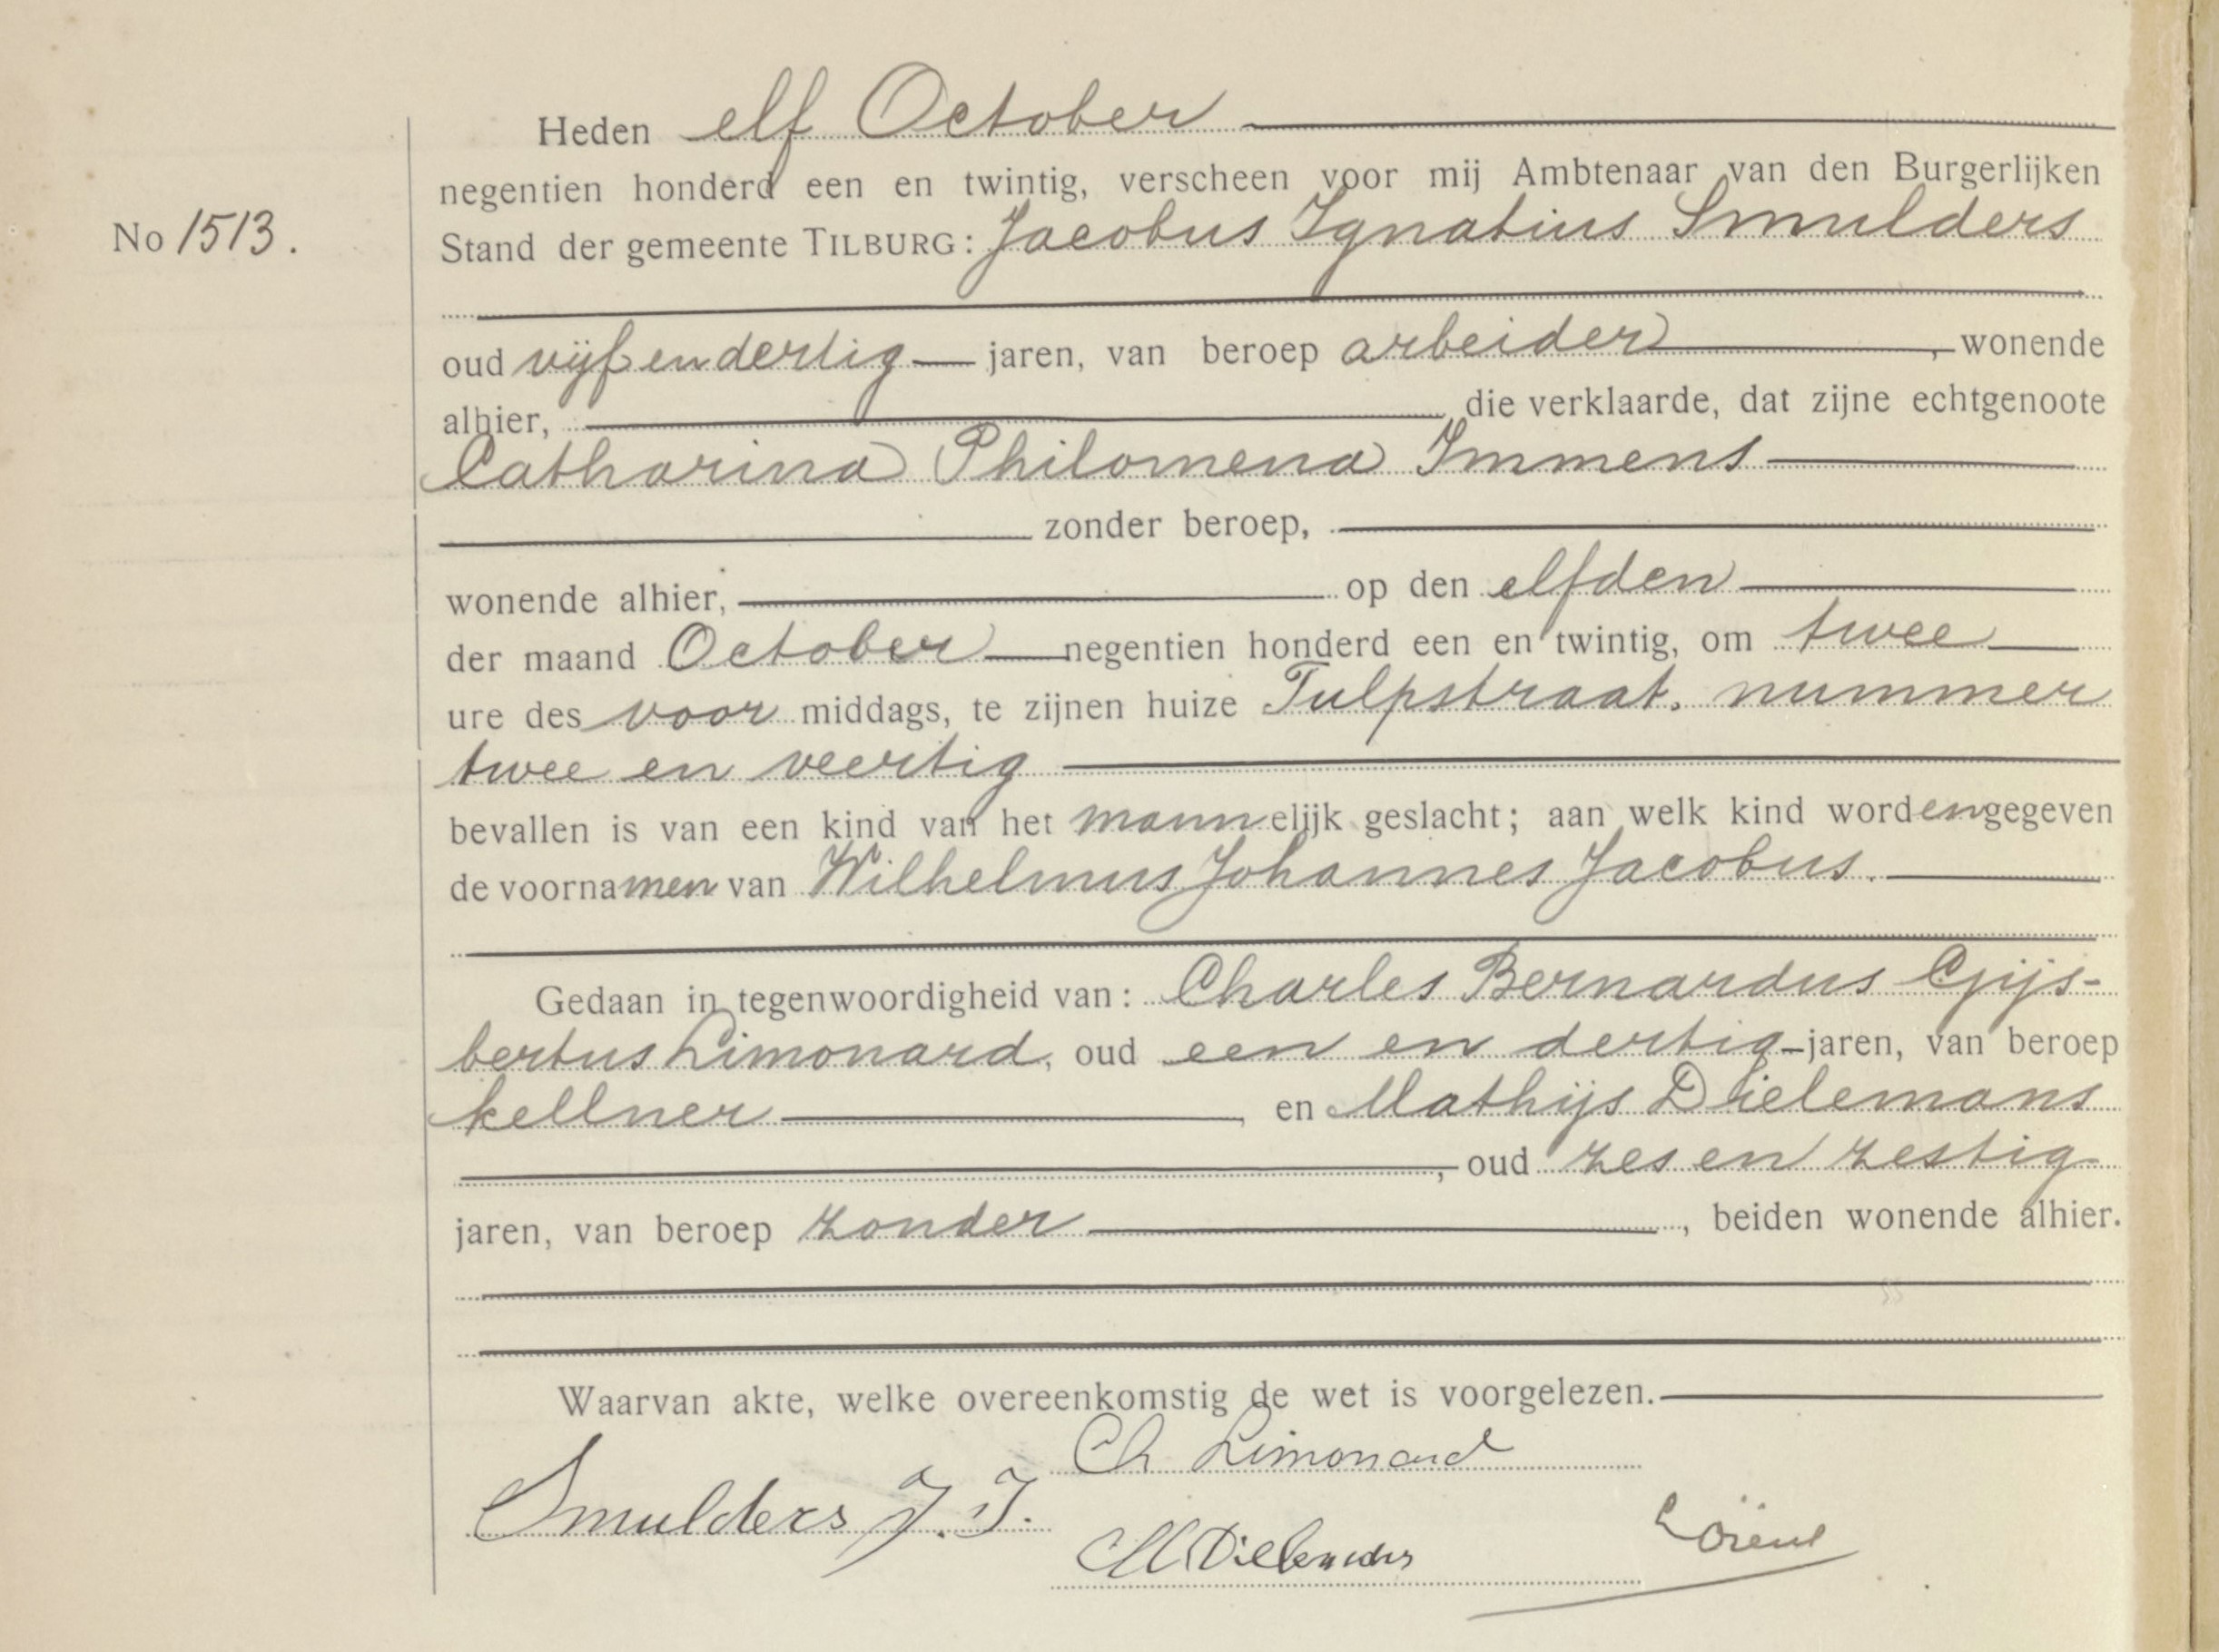 Heden elf October
negentien honderd een en twintig, verscheen voor mij Ambtenaar van den Burgerlijken
No 1513.
Stand der gemeente TILBURG: Jacobus Ignatius Smulders
oud vijf en dertig jaren, van beroep arbeider, wonende
alhier, die verklaarde, dat zijne echtgenoote
Catharina Philomena Immens
zonder beroep,
wonende alhier, op den elfden
der maand October negentien honderd een en twintig, om twee
ure des voor middags, te zijnen huize Tulpstraat. nummer
twee en veertig
bevallen is van een kind van het mannelijk geslacht; aan welk kind worden gegeven
de voornamen van Wilhelmus Johannes Jacobus.
Gedaan in tegenwoordigheid van: Charles Bernardus Gijs-
bertus Limonard, oud een en dertig jaren, van beroep
kellner, en Mathijs Dielemans
, oud zes en zestig
jaren, van beroep zonder, beiden wonende alhier.
Waarvan akte, welke overeenkomstig de wet is voorgelezen.
Ch Limonard
Smulders J. I.
M Dielemans